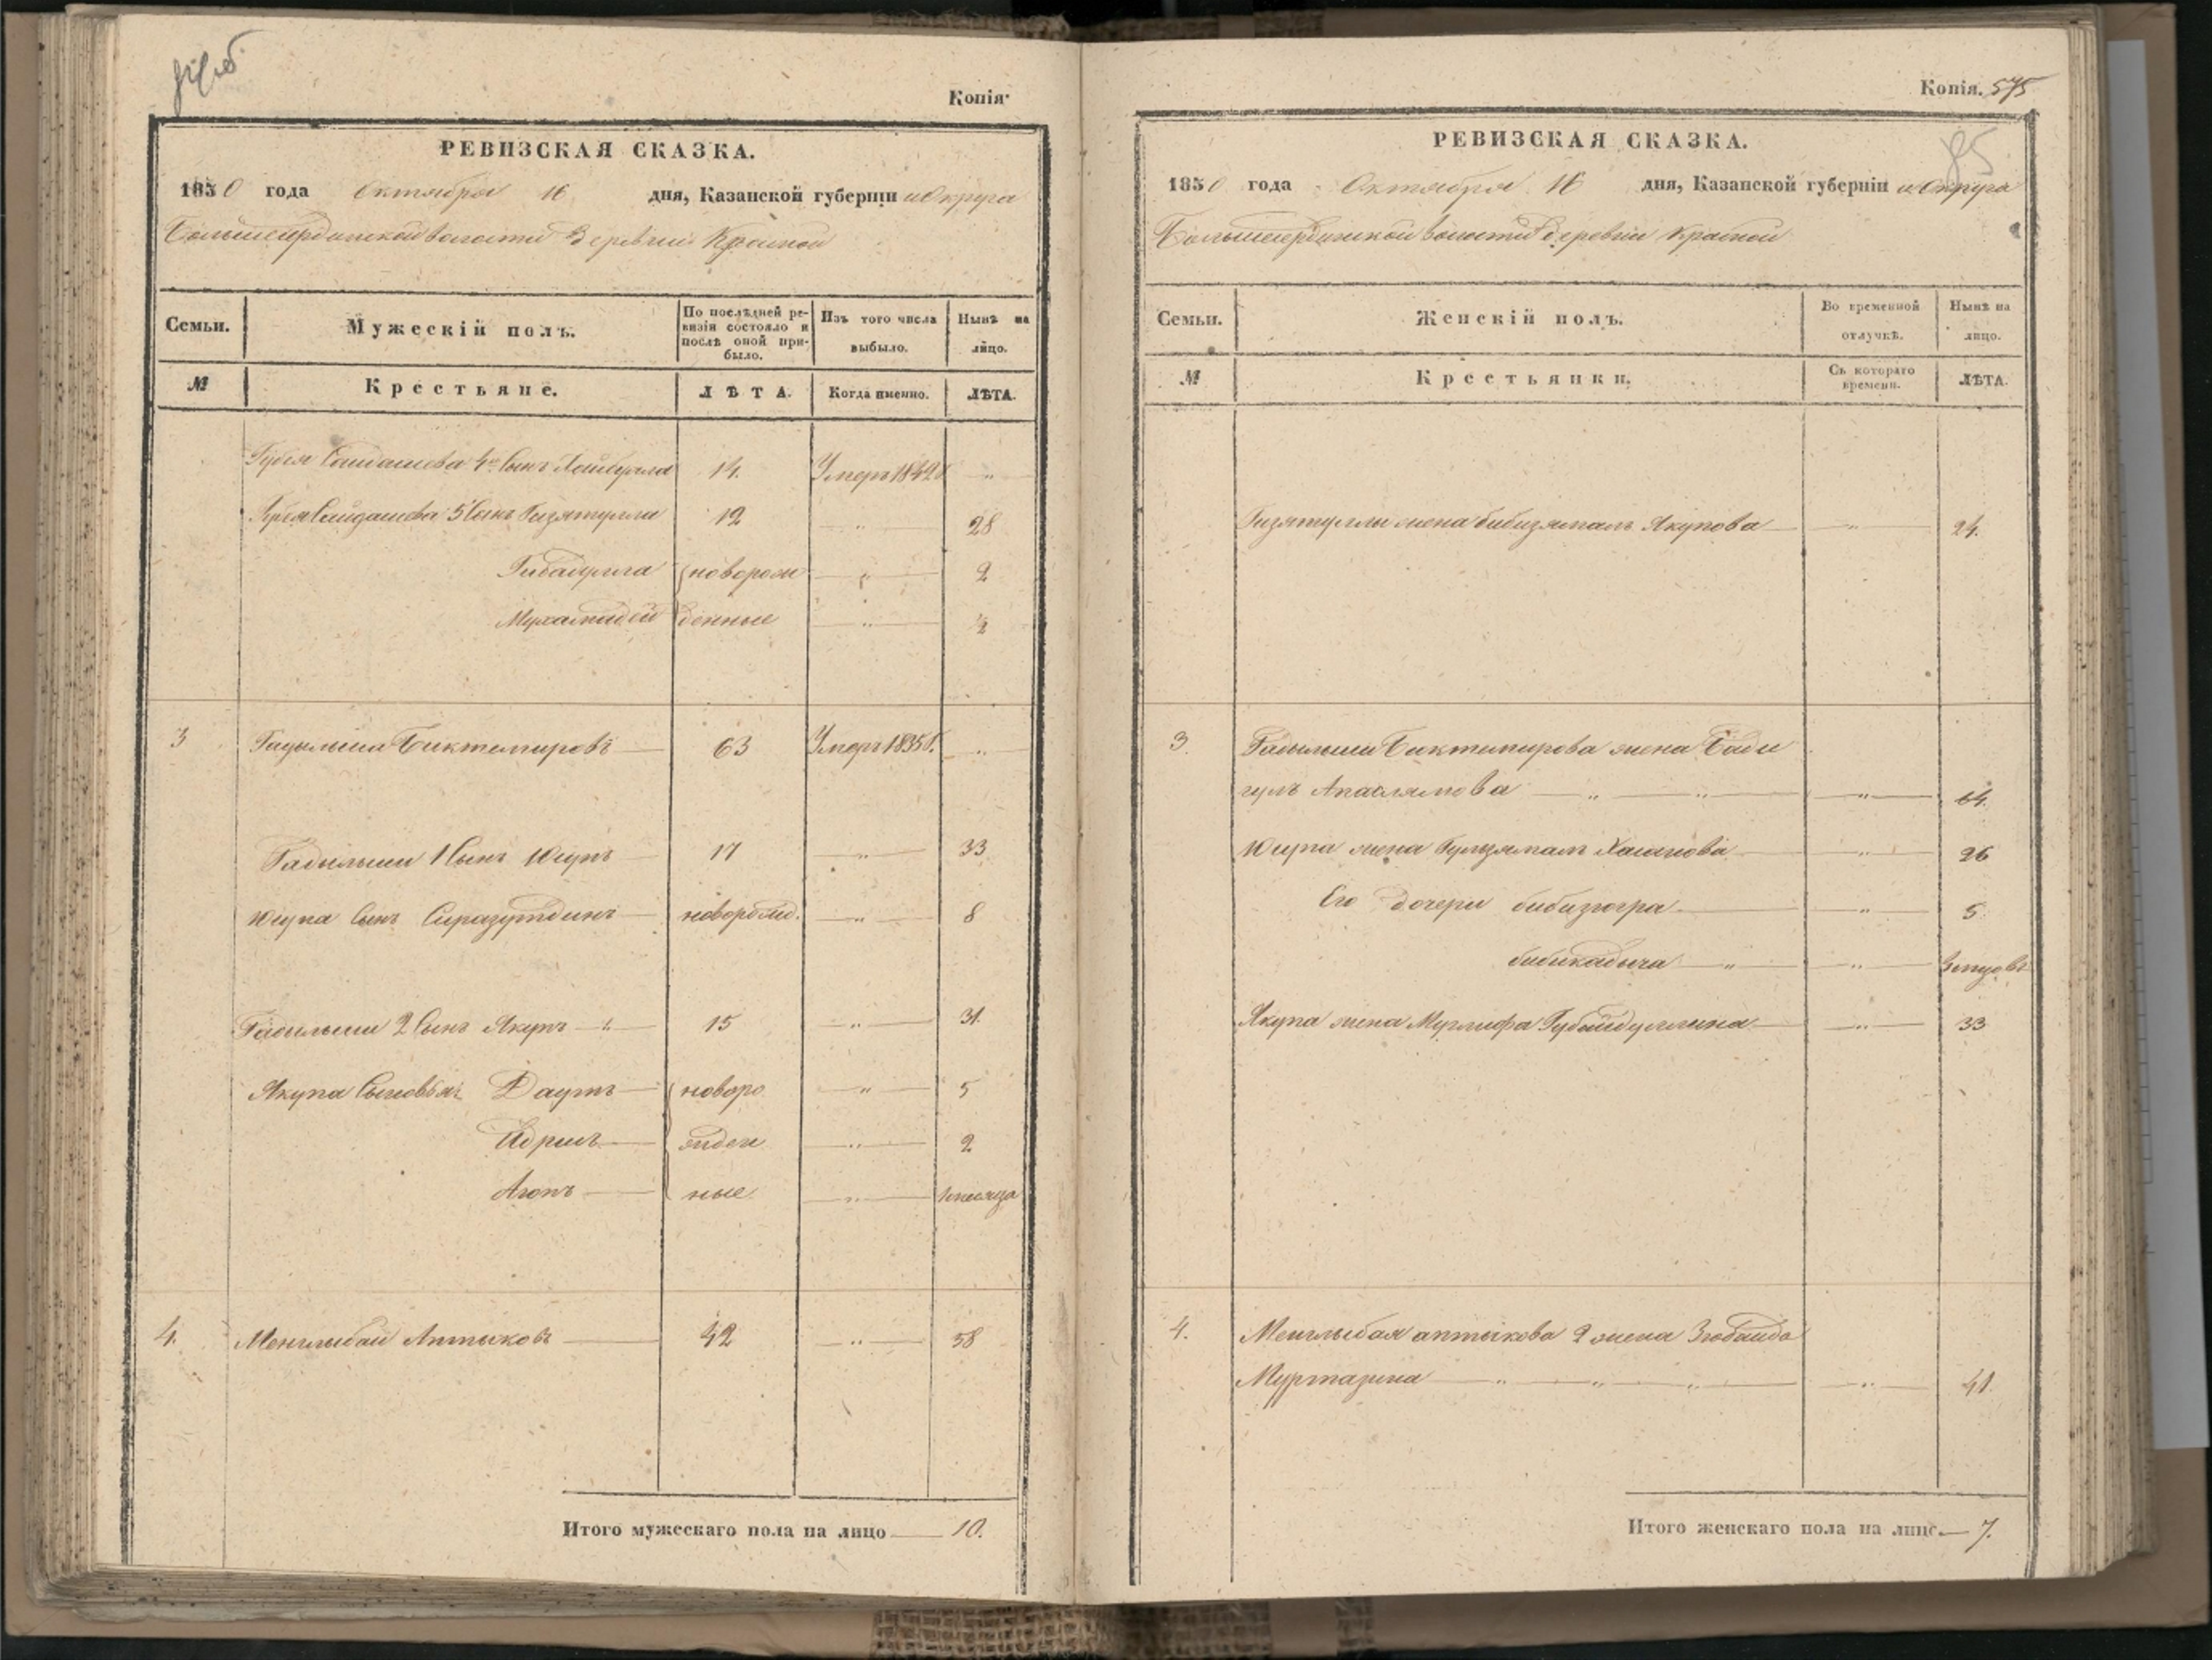 Копія.
РЕВИЗСКАЯ СКАЗКА.
1850 года Октября 16 дня, Казанской губерніи и Округа
волости Деревни Красной
Семьи. Мужескій полъ. По послѣдней ревизіи состояло и послѣ оной прибыло. Изъ того числа выбыло. Нынѣ на лицо.
№ Крестьяне. ЛѢТА. Когда именно. ЛѢТА.
4й Сынъ 14. Умеръ 1842 „
Сайдашева 5 Сынъ Гизятулла 12 „ 28
Гибадулла новорож 2
денные „ ½
3 Биктемировъ 63 Умеръ 1835 „
Гадильши 1 Сынъ Юсупъ 17 „ 33
Юсупа Сынъ Сиразутдинъ новорожд. „ 8
Гадильши 2 Сынъ Якупъ 15 „ 31.
Якупа Сыновья: Даутъ новоро „ 5
Идрисъ жден „ 2
ные „
4. Менглыбай Аптыковъ 42 „ 58
Итого мужескаго пола на лицо 10.
Копія. 575
85
РЕВИЗСКАЯ СКАЗКА.
1850 года Октября 16 дня, Казанской губерніи и Округа
волости Деревни Красной
Семьи. Женскій полъ. Во временной отлучкѣ. Нынѣ на лицо.
№ Крестьянки. Съ котораго времени. ЛѢТА.
Гизятуллы жена бибизямалъ Якупова „ 24.
3. Гадильши Биктимирова жена Бади
гулъ „ 64.
Юсупа жена Гульзямалъ Хасанова „ 26
Его дочери „ 5
„
Якупа жена Губайдуллина „ 33
4. Менглыбая аптыкова 2 жена Зюбайда
Муртазина „ 41.
Итого женскаго пола на лицо. 7.